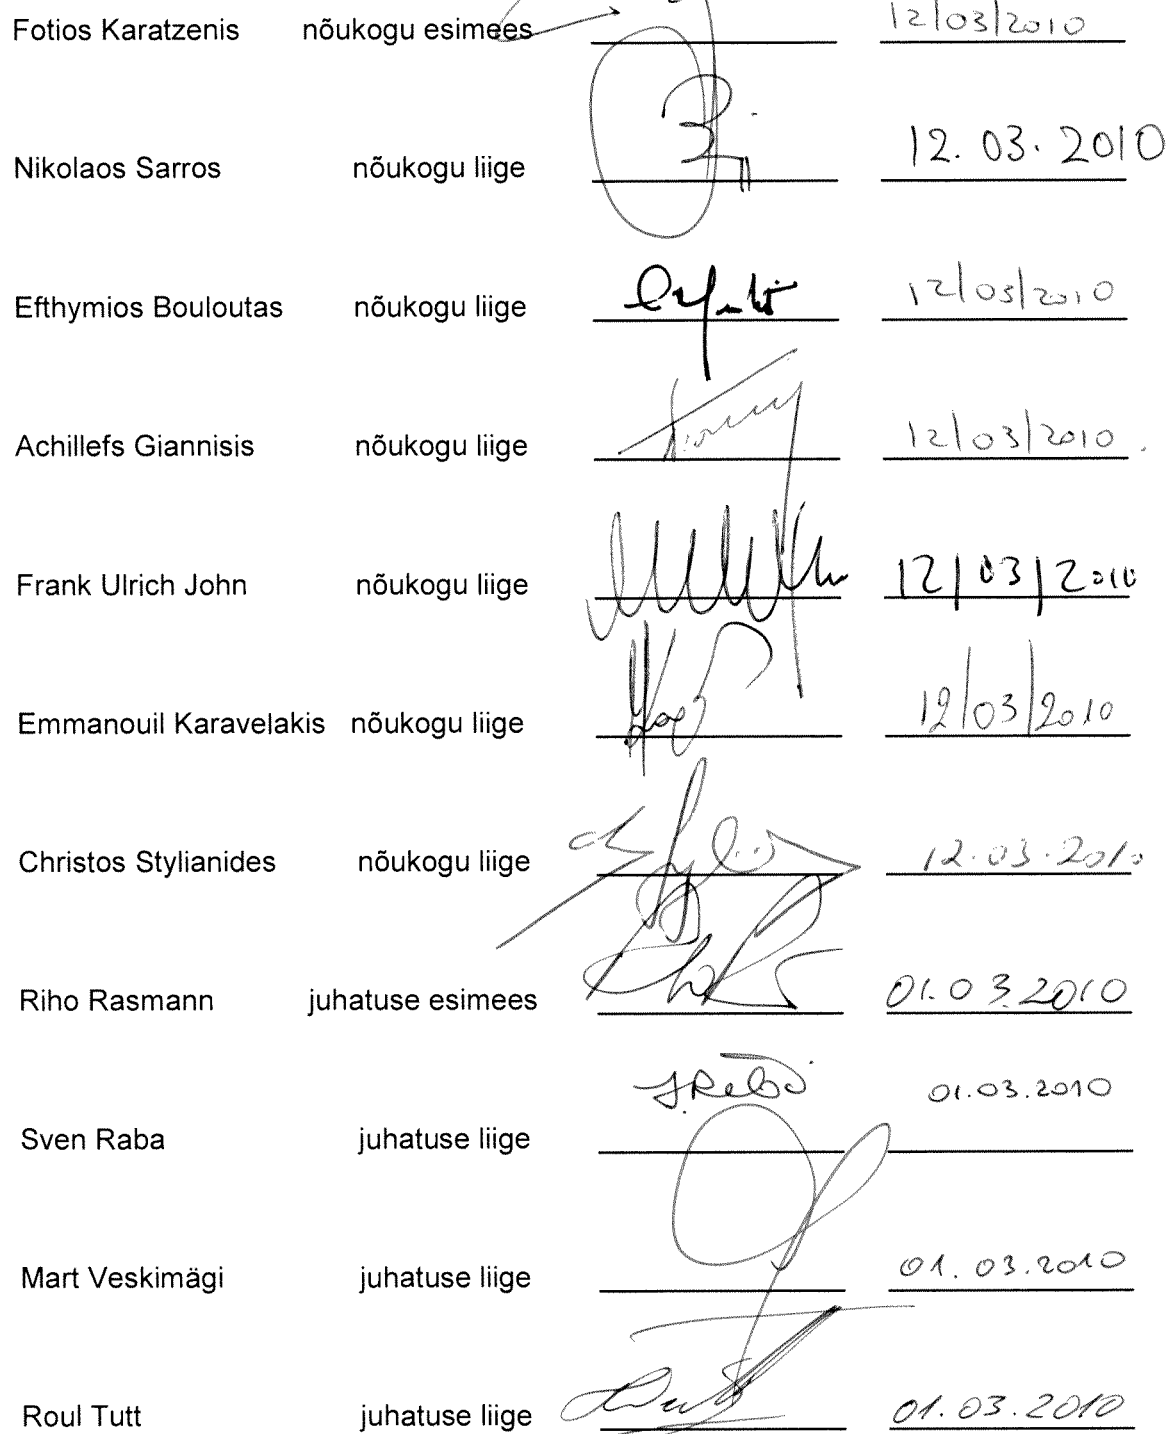 Fotios Karatzenis nõukogu esimees 12/03/2010
Nikolaos Sarros nõukogu liige 12. 03. 2010
Efthymios Bouloutas nõukogu liige 12/03/2010
Achillefs Giannisis nõukogu liige 12/03/2010
Frank Ulrich John nõukogu liige 12/03/2010
Emmanouil Karavelakis nõukogu liige 12/03/2010
Christos Stylianides nõukogu liige 12.03.2010
Riho Rasmann juhatuse esimees 01.03.2010
01.03.2010
Sven Raba juhatuse liige
Mart Veskimägi juhatuse liige 01.03.2010
Roul Tutt juhatuse liige 01.03.2010